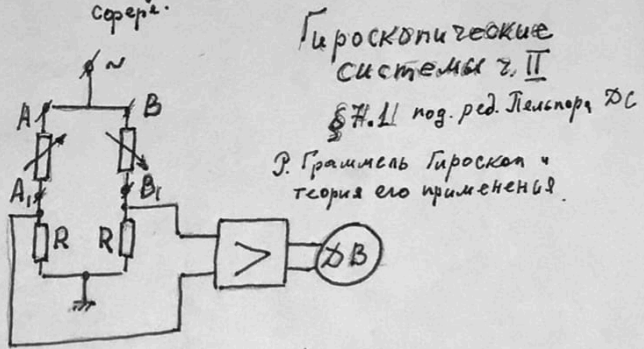 сфере.
Гироскопические
системы ч. II
§ 7.1 под. ред. Пельпора ДС
Р. Граммель Гироскоп и
теория его применения.
~
A B
A₁ B₁
R R
>
ДВ